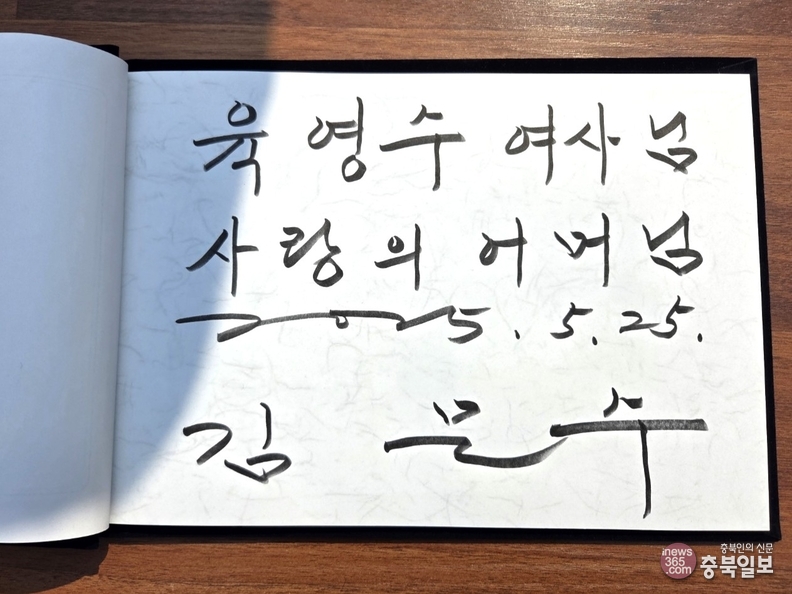 육 영수 여사님
사랑의 어머님
2025. 5. 25.
김 문수
inews
365
.com
충북인의 신문
충북일보